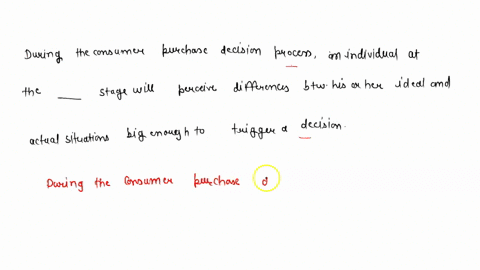 During the consumer purchase decision process, an individual at
the ___ stage will perceive differences btw his or her ideal and
actual situations big enough to trigger a decision.
During the Consumer purchase d